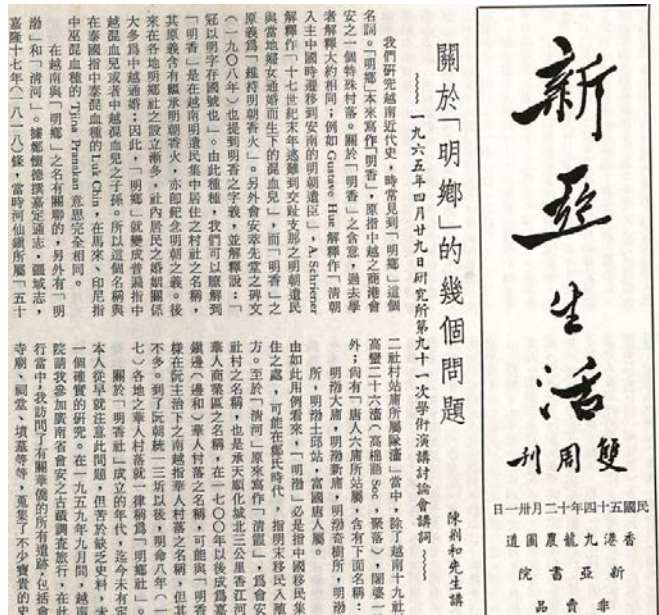 新亞生活
雙周刊
民國五十四年十二月卅一日
香港九龍農圃道
新亞書院
非賣品
關於「明鄉」的幾個問題
一九六五年四月廿九日研究所第九十一次學術演講討論會講詞
陳荊和先生講
我們研究越南近代史,時常見到「明鄉」這個
名詞。「明鄉」本來寫作「明香」,原指中越之商港會
安之一個特殊村落。關於「明香」之含意,過去學
者解釋大約相同;例如 Gustave Hue 解釋作「清朝
入主中國時遷移到安南的明朝遺臣」,A. Schriener
解釋作「十七世紀末年逃難到交趾支那之明朝遺民
與當地婦女通婚而生下的混血兒」,而「明香」之
原義爲「維持明朝香火」。另外會安萃先堂之碑文
(一九〇八年)也提到明香之字義,並解釋說:「
冠以明字存國號也」。由此種種,我們可以瞭解到
「明香」是在越南明遺民集中居住之村社之名稱,
其原義含有繼承明朝香火,亦即紀念明朝之義。後
來在各地明鄉社之設立漸多,社內居民之婚姻關係
大多爲中越通婚;因此,「明鄉」就變成普遍指中
越混血兒或者中越混血兒之子孫。所以這個名稱與
在泰國指中泰混血種的 Luk Chin,在馬來、印尼指
中巫混血種的 Tjina Pranakan 意思完全相同。
在越南與「明鄉」之名有關聯的,另外有「明
渤」和「清河」。據鄭懷德撰嘉定通志,疆域志,
嘉隆十七年(一八一八)條,當時河仙鎮所屬「五十
二社村站庸所屬隊滀」當中,除了越南十九社
高蠻二十六滀(高棉語 Soc,聚落),闍婆一
外;尚有「唐人六庸所站屬,含有下面名稱:
明渤大庸,明渤新庸,明渤奇樹所,明渤
所,明渤土邱站,富國唐人屬。
由如此用例看來,「明渤」必是指中國移民集
住之處,可能在鄭氏時代,指明末移民入殖
方。至於「清河」原來寫作「清霞」,爲會安
社村之名稱,也是承天順化城北三公里香江河
華人商業區之名稱,在一七〇〇年以後成爲嘉
鎮邊(邊和)華人村落之名稱,可能與「明香
樣在阮主治下之南越指華人村落之名稱,但其
不多。到了阮朝統一三圻以後,明命八年(一
七)各地之華人村落就一律稱爲「明鄉社」。
關於「明香社」成立的年代,迄今未有定
本人從早就注意此問題,但苦於缺乏史料,未
一個確實的研究。在一九五九年九月間,越南
院請我參加廣南省會安之古蹟調查旅行,在此
行當中,我訪問了有關華僑的所有遺跡,包括會
寺廟、祠堂、墳墓等等,蒐集了不少寶貴的史